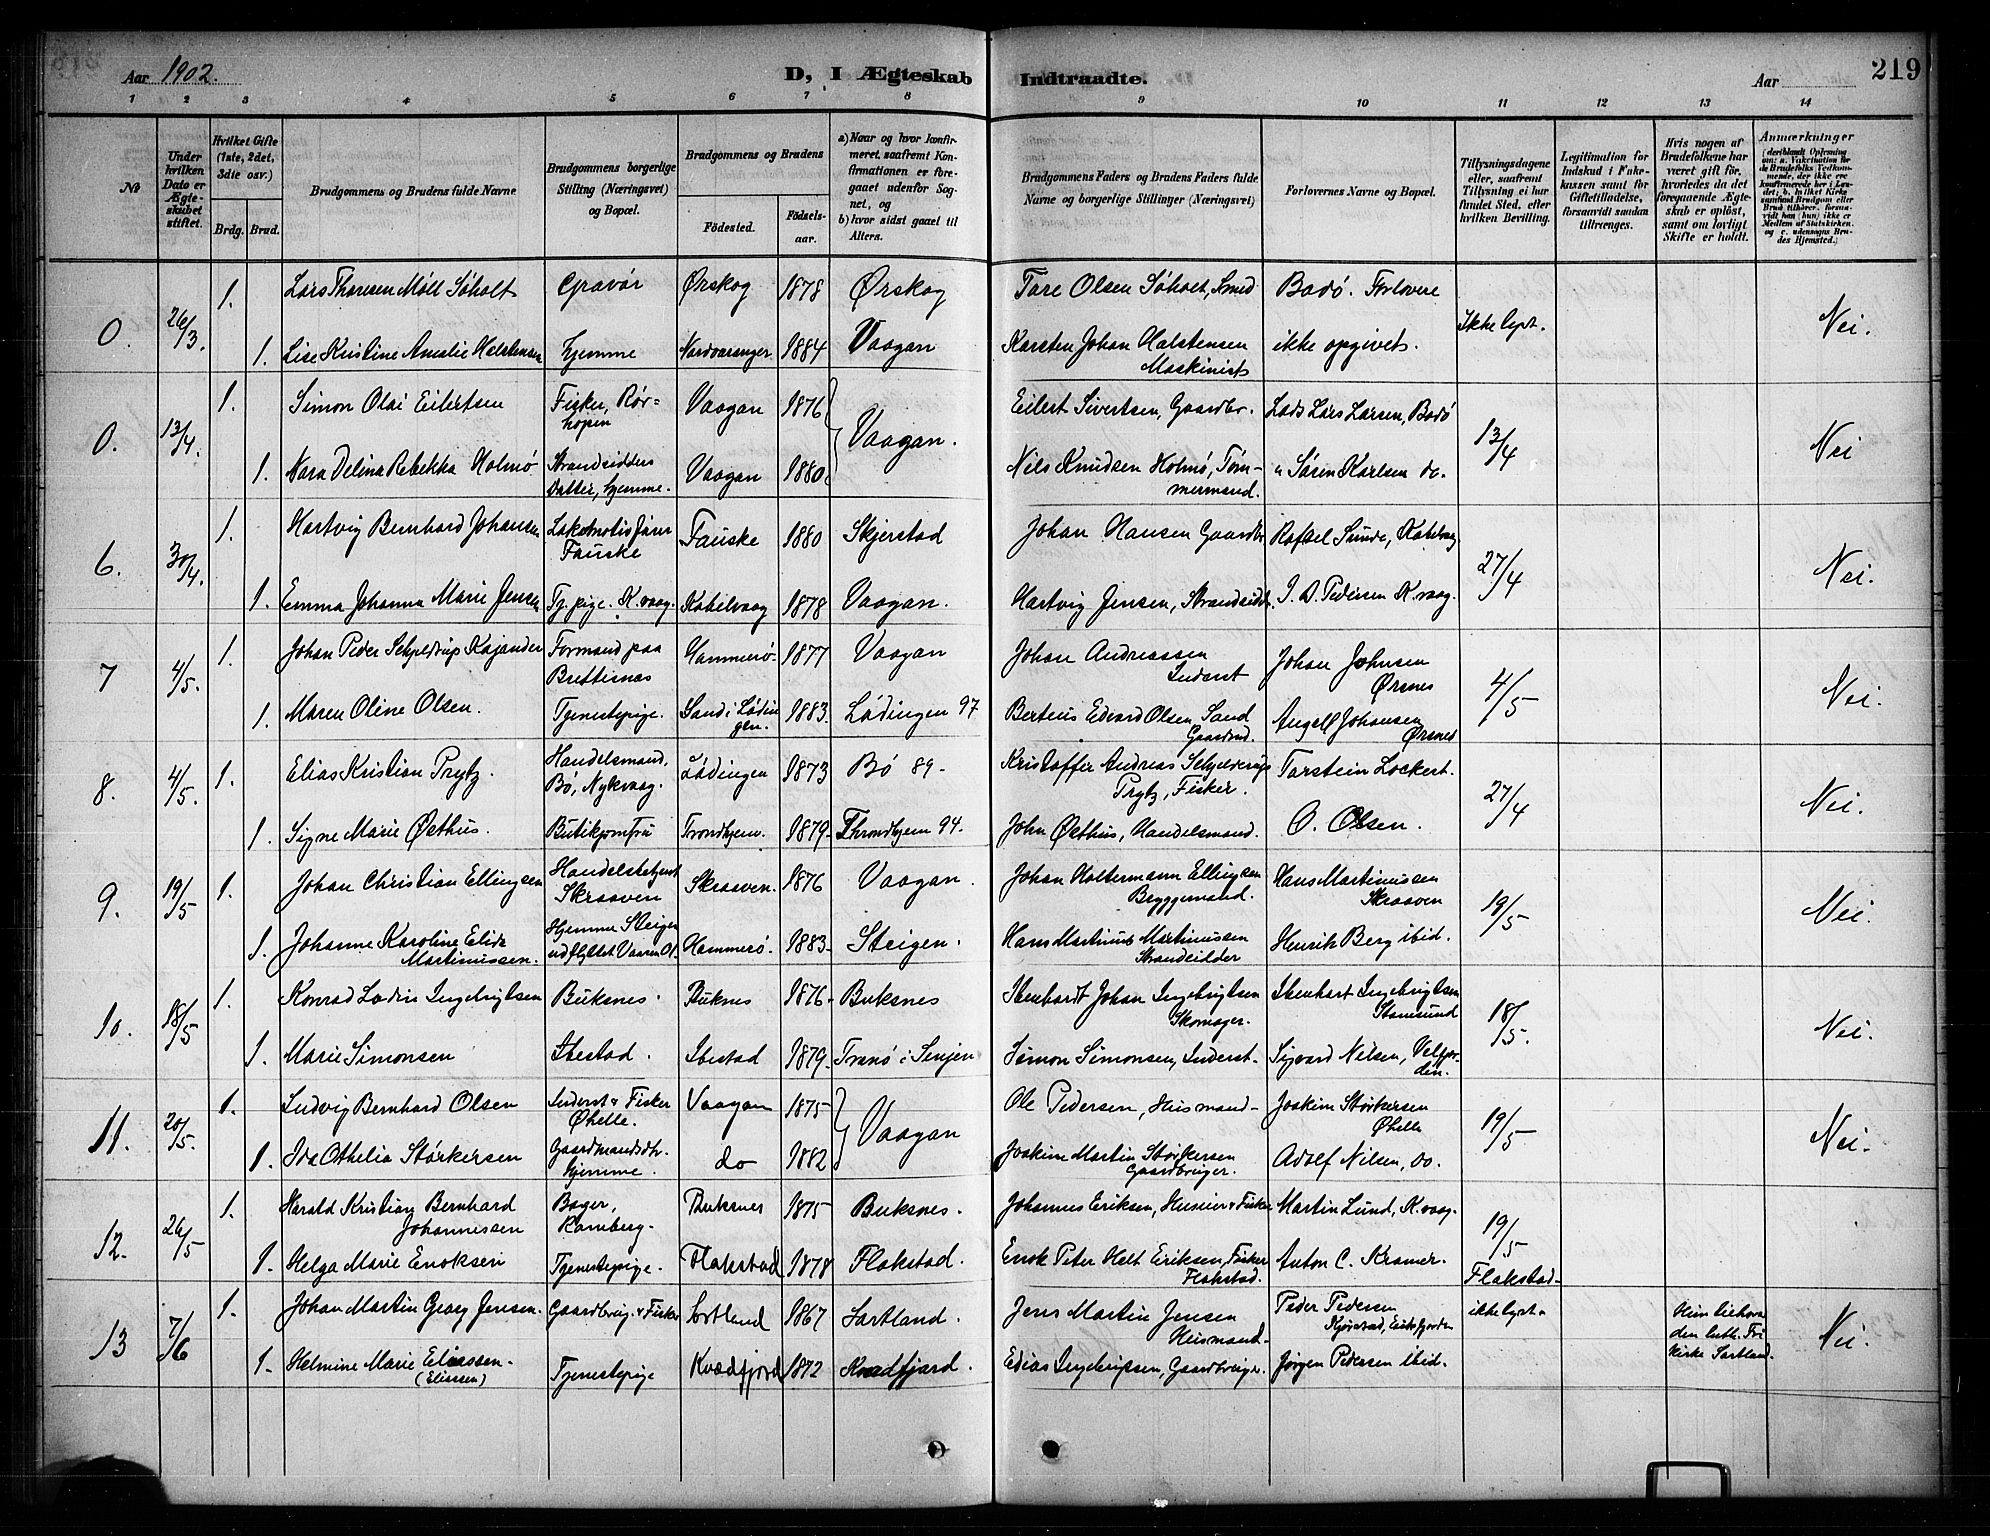 Aar 1902.
D, I Ægteskab Indtraadte.
Aar
219
1 2 3 4 5 6 7 8 9 10 11 12 13 14
No
Under hvilken Dato er Ægteskabet stiftet.
Hvilket Gifte (1ste, 2det, 3die osv.)
Brdg. Brud.
Brudgommens og Brudens fulde Navne
Brudgommens borgerlige Stilling (Næringsvei) og Bopæl.
Brudgommens og Brudens
Födested.
Födselsaar.
a) Naar og hvor konfirmeret, saafremt Konfirmationen er foregaaet udenfor Sognet, og
b) hvor sidst gaaet til Alters.
Brudgommens Faders og Brudens Faders fulde Navne og borgerlige Stillinger (Næringsvei)
Forlovernes Navne og Bopæl.
Tillysningsdagene eller, saafremt Tillysning ei har fundet Sted, efter hvilken Bevilling.
Legitimation for Indskud i Enkekassen samt for Giftetilladelse, forsaavidt saadan tiltrænges.
Hvis nogen af Brudefolkene har været gift för, hvorledes da det foregaaende Ægteskab er oplöst, samt om lovligt Skifte er holdt.
Anmærkninger
0. 26/3. 1. Lars Thoresen Möll Söholt Gravör Ørskog 1878 Ørskog Tore Olsen Söholt, Smed Bodö. Forlovere Ikke lyst. Nei.
1. Lise Kristine Amalie Halstensen hjemme Nordvaranger 1884 Vaagan Karsten Johan Halstensen Maskinist ikke opgivet.
0. 13/4. 1. Simon Olai Eilertsen Fisker, Rörhopen Vaagan 1876 Vaagan. Eilert Sivertsen, Gaardbr. Lods Lars Larsen, Bodö 13/4 Nei
1. Nora Delina Rebekka Holmö Strandsidders Datter, hjemme. Vaagan 1880 Nils Knudsen Holmö, Tömmermand. " Sören Karlsen do.
6. 30/4. 1. Hartvig Bernhard Johansen Lokomotivförer Fauske Fauske 1880 Skjerstad Johan Hansen Gaardbr Rafael Sunde, Kabelvaag 27/4 Nei.
1. Emma Johanna Marie Jensen Tj. pige. K.vaag. Kabelvaag 1878 Vaagan. Hartvig Jensen, Strandsidd. I. D. Pedersen K.vaag.
7 4/5. 1. Johan Peder Schjeldrup Kajander Formand paa Brettesnes Hammerö 1877 Vaagan Johan Andreassen Inderst Johan Johnsen Ørsnes 4/5 Nei.
1. Maren Oline Olsen. Tjenestepige. Sand i Lödingen. 1883. Lödingen 97 Berteus Edvard Olsen Sand Gaardmd. Angell Johansen Ørsnes
8. 4/5. 1. Elias Kristian Prytz. Handelsmand, Bö, Nykvaag. Lödingen 1873 Bö 89. Kristoffer Andreas Schjelderup Prytz, Fisker. Torstein Lockert. 27/4 Nei.
1. Signe Marie Østhus. Butikjomfru Trondhjem. 1879. Throndhjem 94. John Østhus, Handelsmand. O. Olsen.
9. 19/5 1. Johan Christian Ellingsen Handelsbetjent Skraaven Skraaven. 1876 Vaagan. Johan Holtermann Ellingsen Bryggemand. Hans Martinussen Skraaven 19/5 Nei.
1. Johanne Karoline Elida Martinussen. Hjemme Steigen Hammerö. 1883. Steigen. Hans Martinus Martinussen Strandsidder Henrik Berg ibid.
10. 18/5 1. Konrad Lodin Ingebrigtsen Buksnes. Buknes 1876. Buksnes Ibenhardt Johan Ingebrigtsen Skomager. Ibenhart Ingebrigtsen Stamsund 18/5. Nei.
1. Marie Simonsen Ibestad. Ibestad 1879. Tranö i Senjen Simon Simonsen, Inderst. Sigvard Nilsen,
11. 20/5. 1. Ludvig Bernhard Olsen Inderst & Fisker Øhelle. Vaagan 1875 Vaagan Ole Pedersen, Husmand. Joakim Störkersen Øhelle 19/5 Nei.
1. Ida Othelia Störkersen Gaardmandsdtr. Hjemme. do 1882 Joakim Martin Störkersen Gaardbruger. Adolf Nilsen, do.
12. 26/5 1. Harald Kristian Bernhard Johannessen Bager, Ramberg. Buksnes 1875 Buksnes. Johannes Eriksen, Huseier & Fisker Martin Lund, K.vaag. 19/5 Flakstad.
1. Helga Marie Enoksen Tjenestepige. Flakstad 1878 Flakstad. Enok Peter Helt Eriksen, Fisker Flakstad. Anton C. Kramer.
13 7/6 1. Johan Martin Georg Jensen. Gaardbrug. & Fisker Sortland 1867 Sortland. Jens Martin Jensen Husmand. Peder Pedersen ikke lyst. Nei.
den luth. Frikirke Sortland.
1. Helmine Marie Eliassen. (Eliassen) Tjenestepige Kvædfjord 1872 Kvædfjord. Edias Ingebrigtsen, Gaardbruger. Jörgen Pedersen ibid.